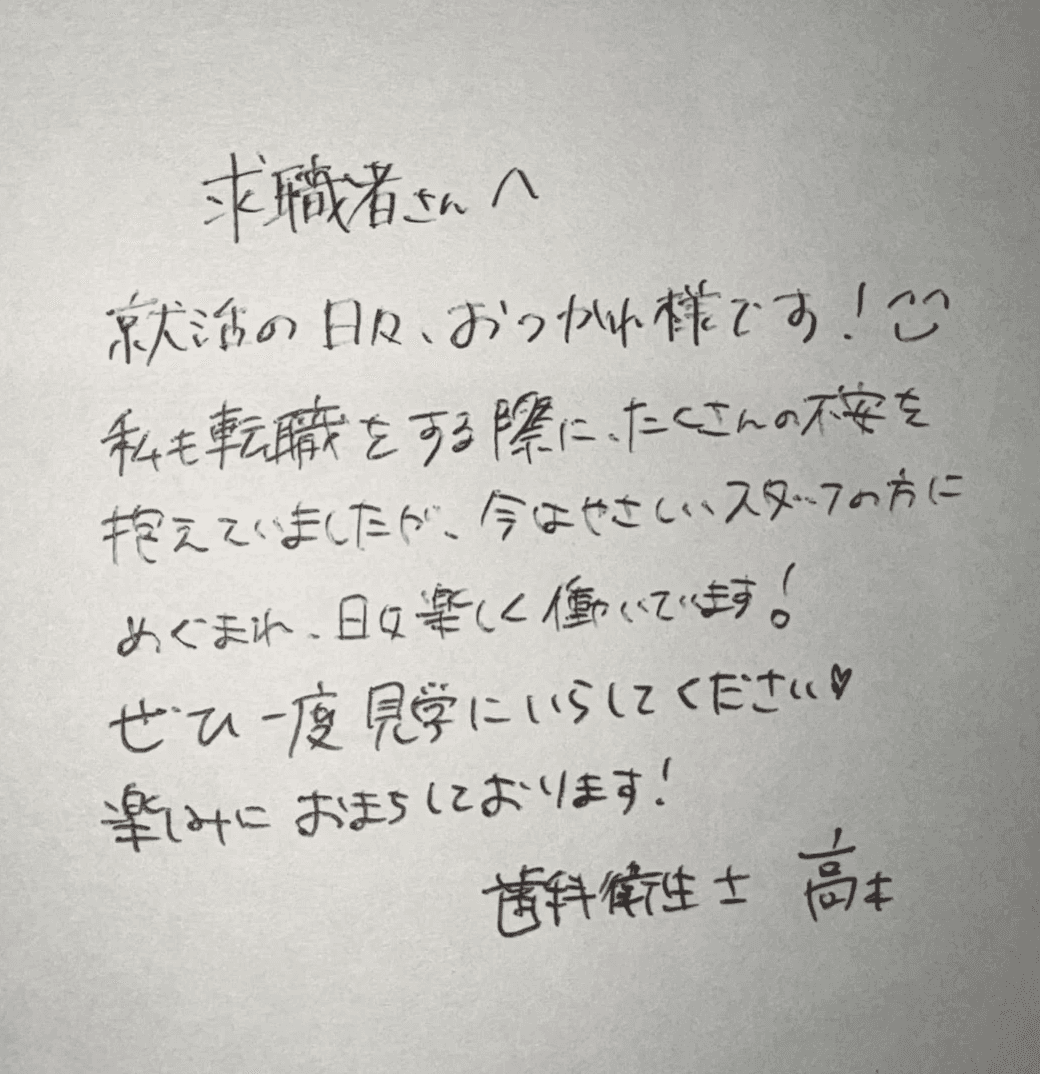 求職者さんへ
就活の日々、おつかれ様です！
私も転職をする際に、たくさんの不安を
抱えていましたが、今はやさしいスタッフの方に
めぐまれ、日々楽しく働いています！
ぜひ一度見学にいらしてください♥
楽しみにおまちしております！
歯科衛生士 高本